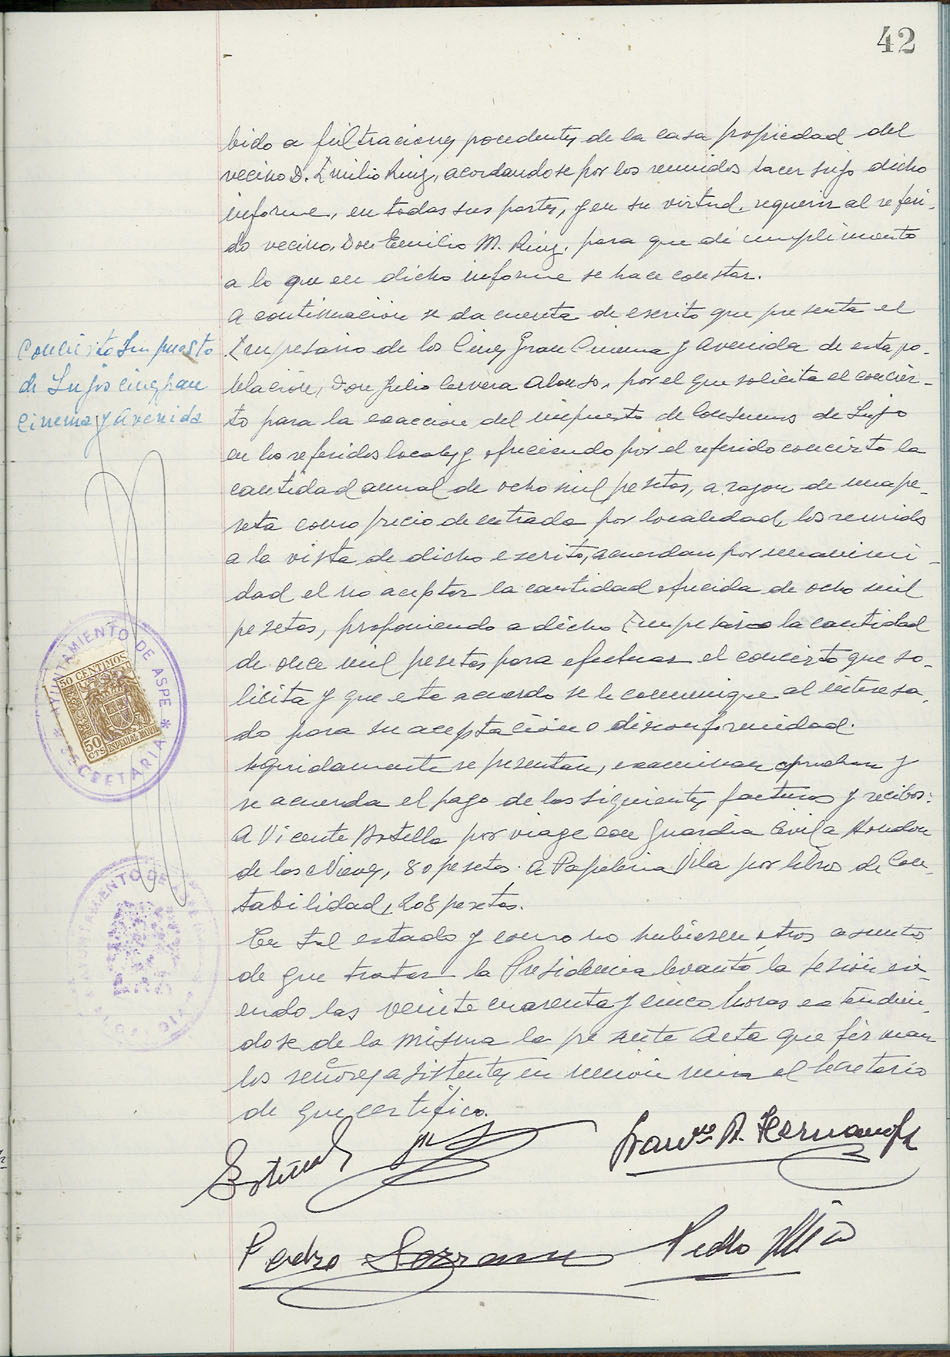 42
bido a filtraciones procedentes de la casa propiedad del
vecino D. Emilio Ruiz, acordandose por los reunidos hacer suyo dicho
informe, en todas sus partes, y en su virtud, requerir al referi-
do vecino, Don Emilio M. Ruiz, para que dé cumplimiento
a lo que en dicho informe se hace constar.
A continuación se da cuenta de escrito que presenta el
Empresario de los Cines Gran Cinema y Avenida de esta po-
blación, Don Julio Cervera Alonso, por el que solicita el concier-
to para la exacción del impuesto de Consumos de Lujo
en los referidos locales y ofreciendo por el referido concierto la
cantidad anual de ocho mil pesetas, a razon de una pe-
seta como precio de entrada por localidad, los reunidos
a la vista de dicho escrito, acuerdan por unanimi-
dad el no aceptar la cantidad ofrecida de ocho mil
pesetas, proponiendo a dicho Empresario la cantidad
de once mil pesetas para efectuar el concierto que so-
licita y que este acuerdo se le comunique al interesa-
do para su aceptación o disconformidad.
Seguidamente se presentan, examinan aprueban y
se acuerda el pago de las siguientes facturas y recibos:
A Vicente Botella por viage con Guardia Civil a Hondon
de las Nieves, 80 pesetas. A Papeleria Vila por libro de Con-
tabilidad, 208 pesetas.
En tal estado y como no hubiesen otros asunto
de que tratar la Presidencia levantó la sesión si-
endo las veinte cuarenta y cinco horas extendien-
dose de la misma la presente Acta que firman
los señores asistentes en unión mia el Secretario
de que certifico.
Concierto Impuesto
de Lujo cines Gran
Cinema y Avenida
AYUNTAMIENTO DE ASPE
SECRETARIA
50 CENTIMOS
50 CTS
ESPECIAL MOVIL
AYUNTAMIENTO DE
Franco A. Hernandez
Pedro Sorrano
Pedro